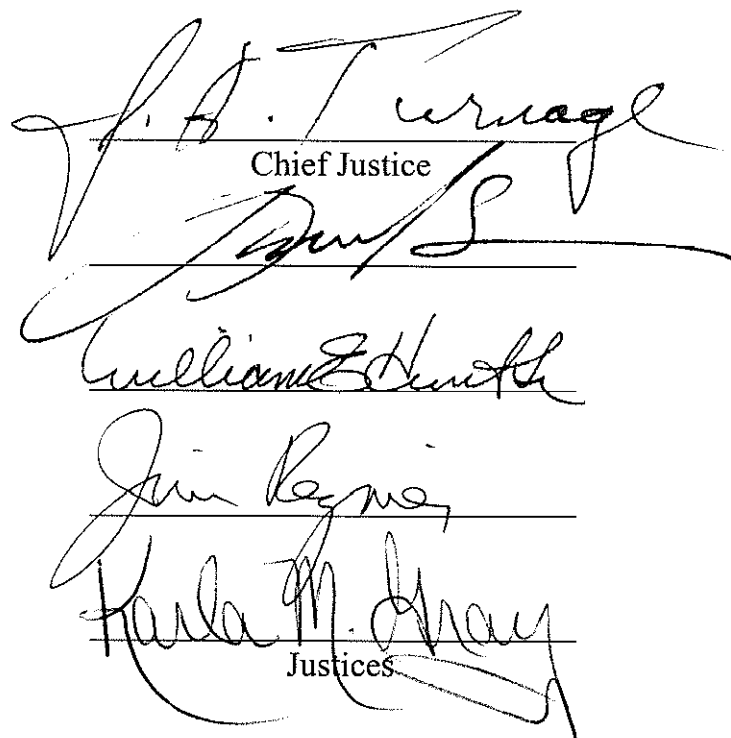 J. A. Turnage
Chief Justice
William E Hunt Sr
Jim Regnier
Karla M. Gray
Justices